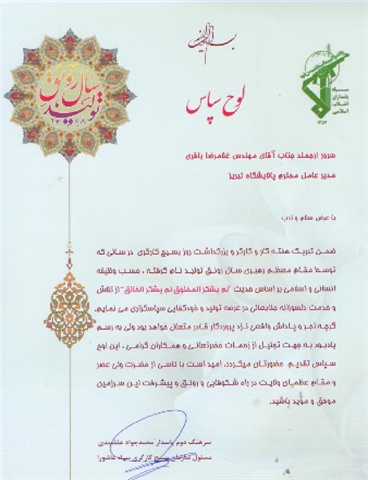 بسم الله الرحمن الرحیم
لوح سپاس
سال رونق تولید
۱۳۹۸
سپاه
پاسداران
انقلاب
اسلامی
۱۳۵۷
سرور ارجمند جناب آقای مهندس غلامرضا باقری
مدیر عامل محترم پالایشگاه تبریز
با عرض سلام و ادب
ضمن تبریک هفته کار و کارگر و بزرگداشت روز بسیج کارگری در سالی که
توسط مقام معظم رهبری سال رونق تولید نام گرفته ، حسب وظیفه
انسانی و اسلامی بر اساس حدیث "لم یشکر المخلوق لم یشکر الخالق" از تلاش
و خدمت دلسوزانه جنابعالی در عرصه تولید و خودکفایی سپاسگزاری می نمایم.
گرچه اجر و پاداش واقعی نزد پروردگار قادر متعال خواهد بود ولی به رسم
یادبود به جهت تجلیل از زحمات حضرتعالی و همکاران گرامی ، این لوح
سپاس تقدیم حضورتان میگردد. امید است با تاسی از حضرت ولی عصر
و مقام عظمای ولایت در راه شکوفایی و رونق و پیشرفت این سرزمین
موفق و مؤید باشید.
سرهنگ دوم پاسدار محمدجواد
مسئول سازمان بسیج کارگری سپاه عاشورا